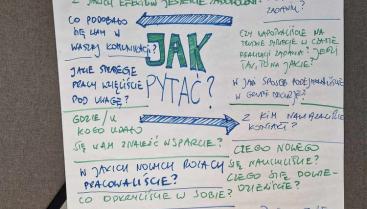 Z JAKICH EFEKTÓW JESTEŚCIE
CO PODOBAŁO
SIĘ WAM W
WASZEJ KOMUNIKACJI?
JAKIE STRATEGIE
PRACY WZIĘLIŚCIE
POD UWAGĘ?
JAK
PYTAĆ?
CZY NAPOTKALIŚCIE NA
TRUDNE SYTUACJE W CZASIE
REALIZACJI ZADANIA? JEŚLI
TAK, TO NA JAKIE?
W JAKI SPOSÓB
W GRUPIE DECYZJE?
GDZIE/U
KOGO UDAŁO
SIĘ WAM ZNALEŹĆ WSPARCIE?
Z KIM NAWIĄZALIŚCIE
KONTAKT?
W JAKICH NOWYCH ROLACH
PRACOWALIŚCIE?
CO ODKRYLIŚCIE W SOBIE?
CZEGO NOWEGO
SIĘ NAUCZYLIŚCIE?
CZEGO SIĘ DOWIE-
DZIELIŚCIE?